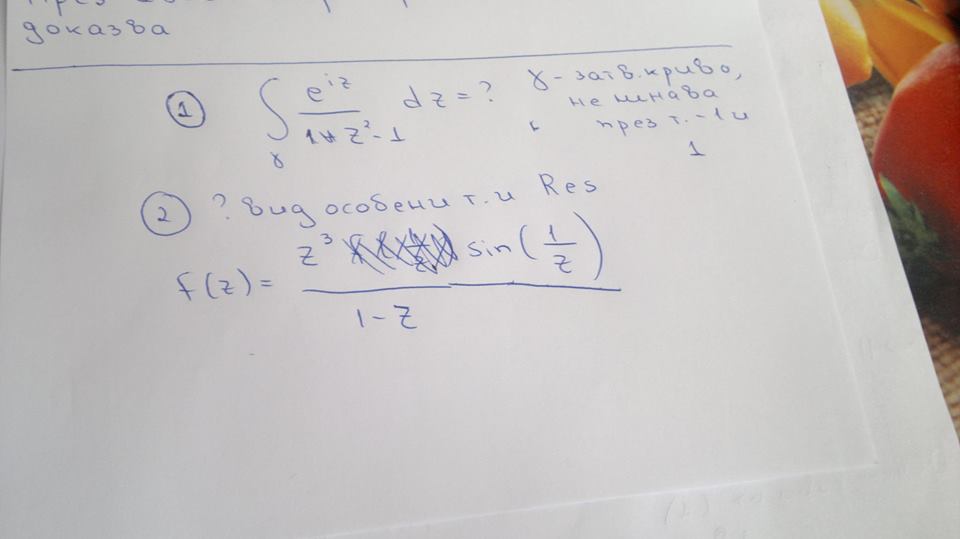 доказва
① ∫γ e^{iz} / (z² - 1) dz = ? γ - затв. крива,
не минава
през т. -1 и
1
② ? вид особени т. и Res
f(z) = z³ sin(1/z) / (1 - z)